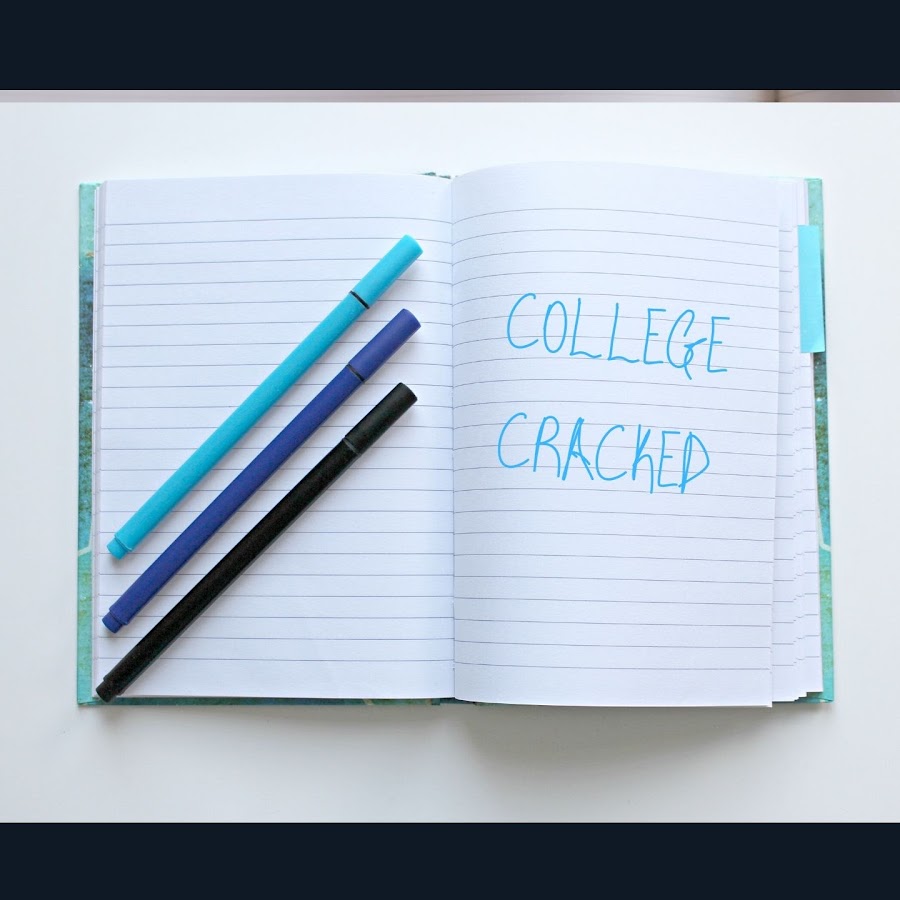 COLLEGE
CRACKED